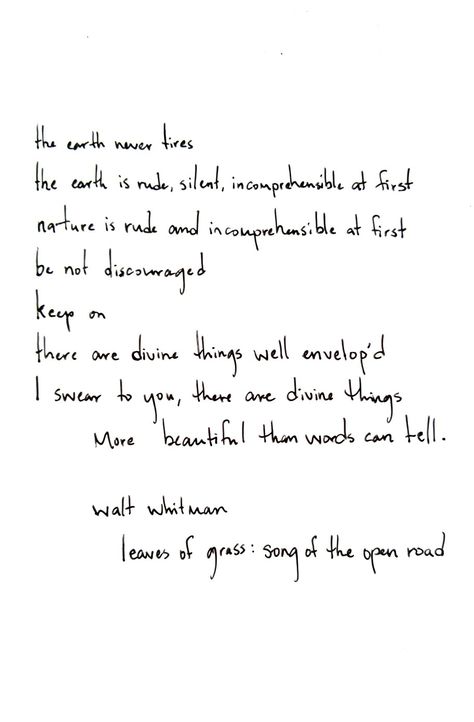 the earth never tires
the earth is rude, silent, incomprehensible at first
nature is rude and incomprehensible at first
be not discouraged
keep on
there are divine things well envelop'd
I swear to you, there are divine things
More beautiful than words can tell.
walt whitman
leaves of grass: song of the open road